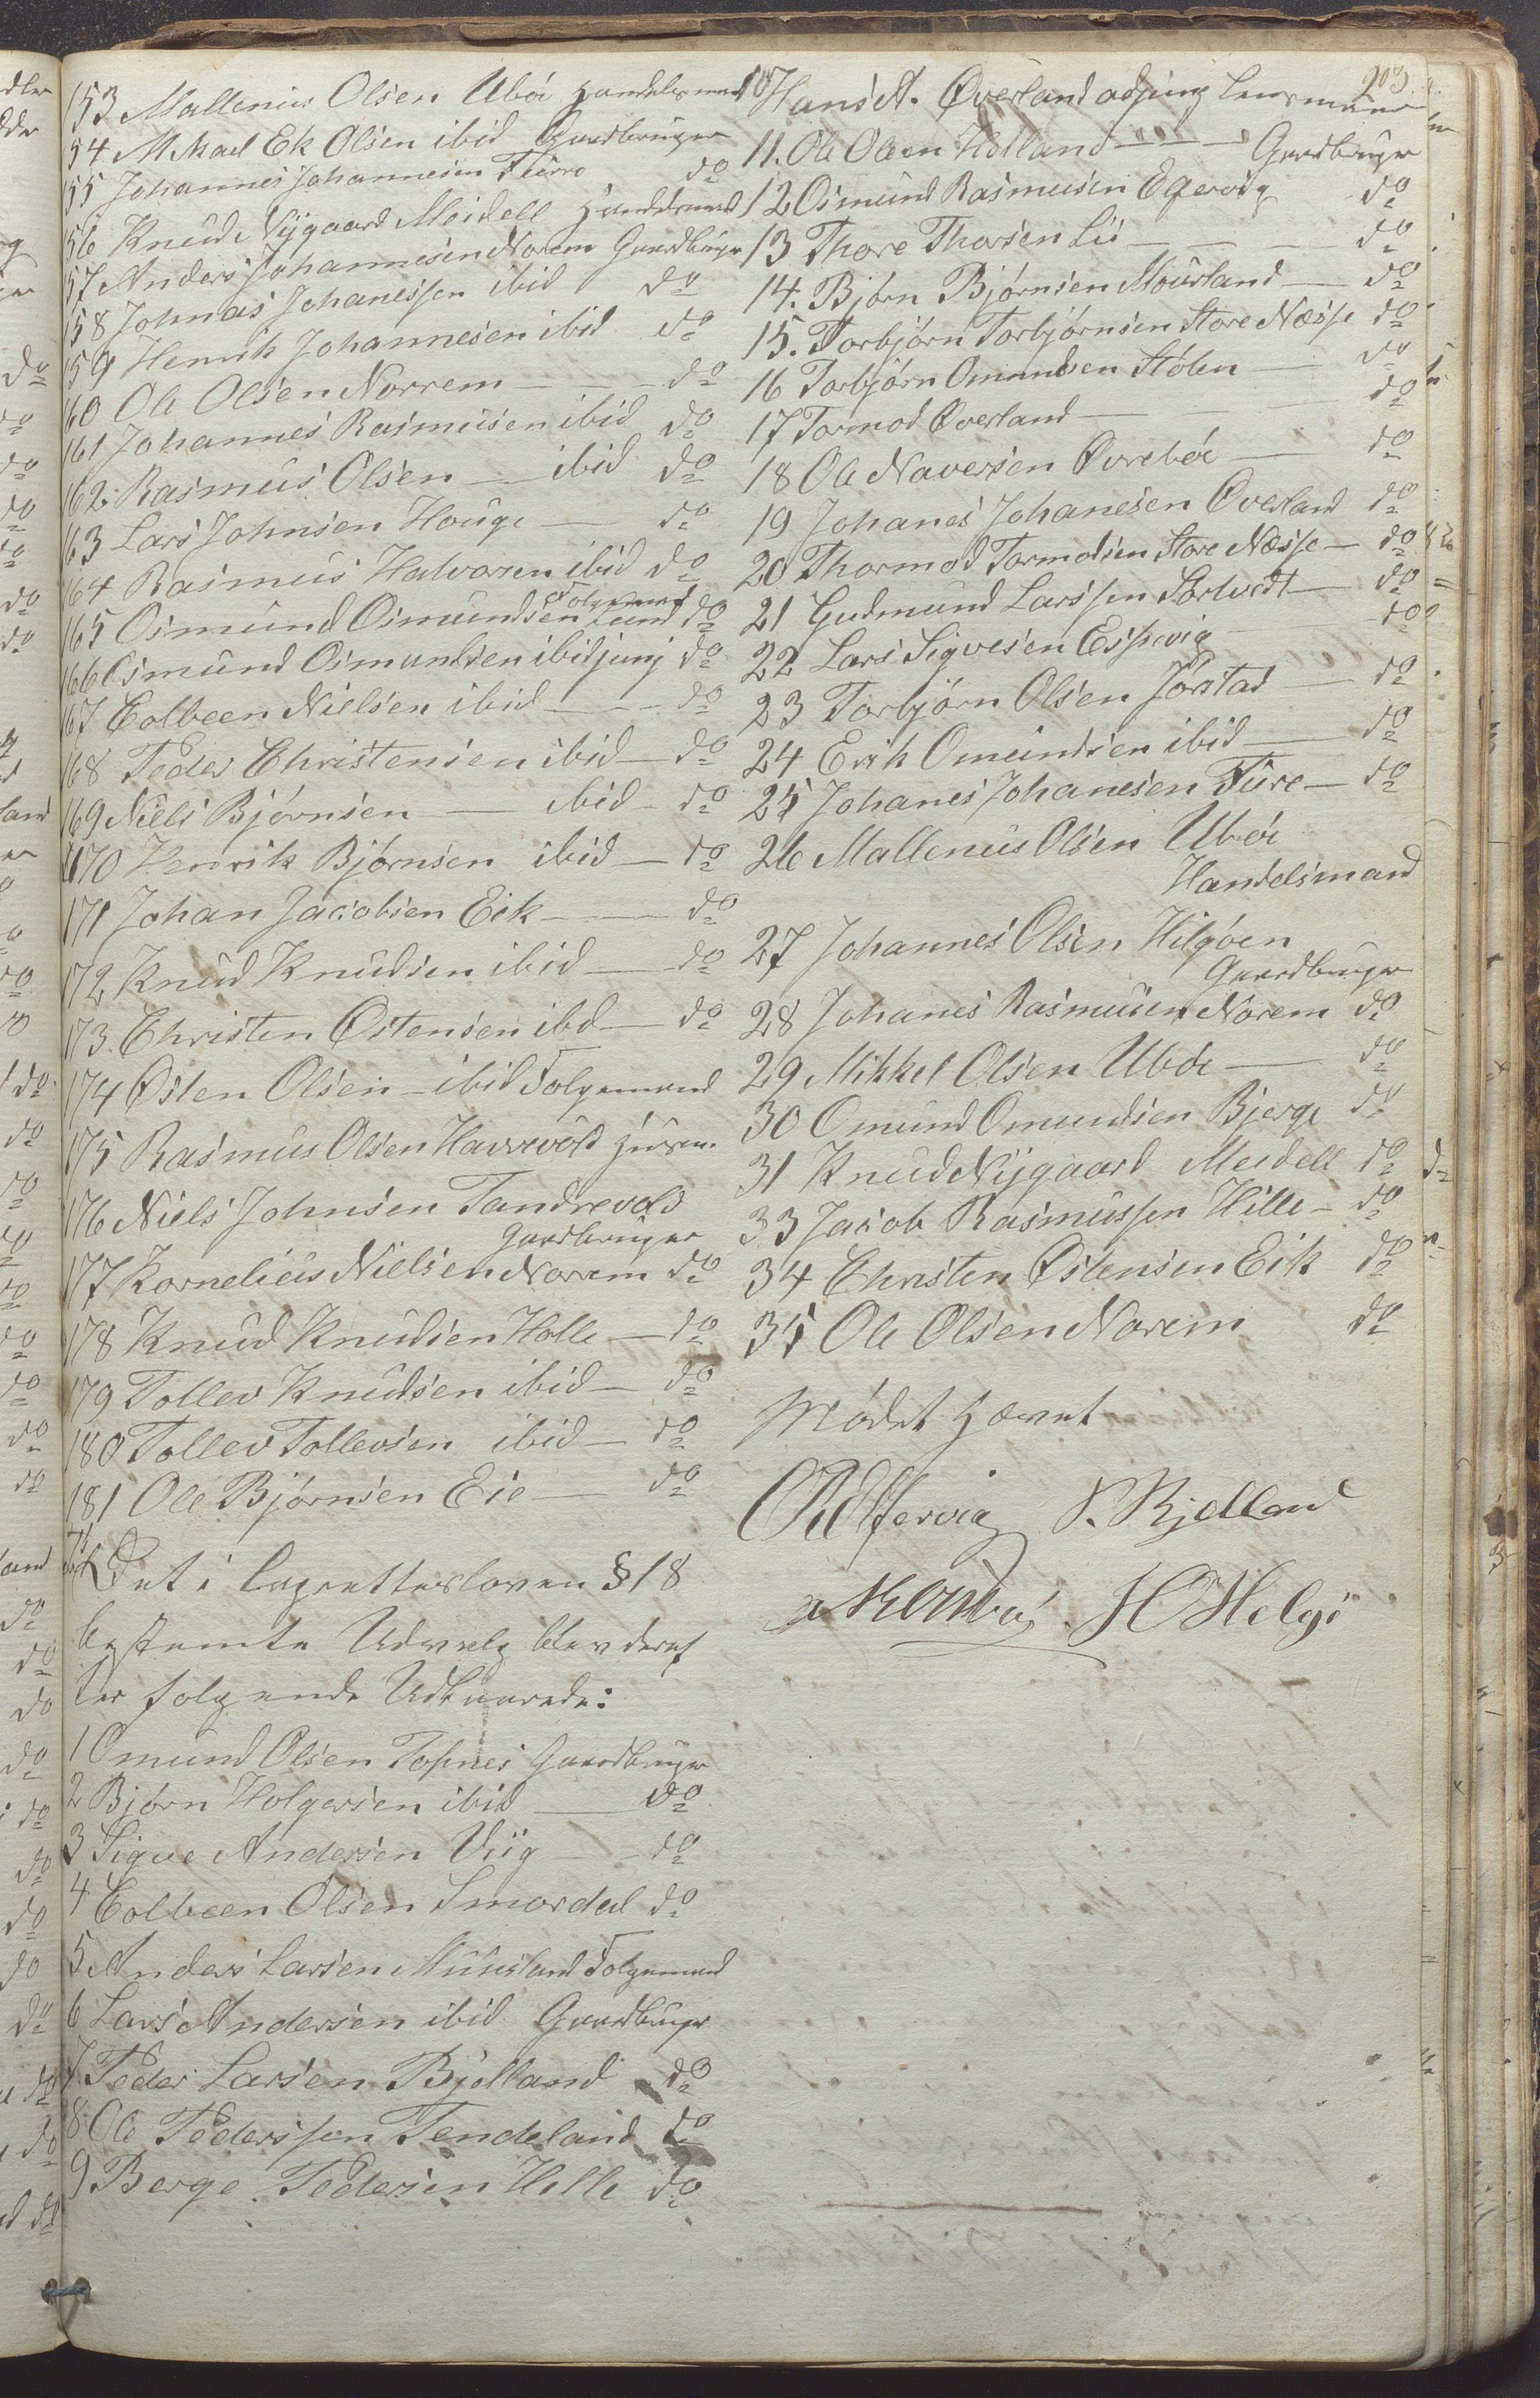 203
153 Mallenius Olsen Uböe Handelsmand
54 Mikael Ek Olsen ibid Gaardbruger
155 Johannes Johannesen Fürre do
156 Knud Nijgaard Meidell Handelsmand
157 Anders Johannesen Norem Gaardbruger
158 Johnas Johanessen ibid do
159 Henrik Johannesen ibid do
160 Ole Olsen Norrem do
161 Johannes Rasmusen ibid do
162 Rasmus Olsen ibid do
163 Lars Johnsen Houge do
164 Rasmus Halvorsen ibid do
165 Osmund Osmundsen Lund do
166 Osmund Osmundsen ibid junj do
167 Colbeen Nielsen ibid do
168 Peder Christensen ibid do
169 Niels Bjørnsen ibid do
170 Henrik Bjørnsen ibid do
171 Johan Jacobsen Eik do
172 Knud Knudsen ibid do
173 Christen Østensen ibd do
174 Østen Olsen ibid Folgemand
175 Rasmus Olsen Harrevold
176 Niels Johnsen Tandrevold
Gaardbruger
177 Kornelius Nielsen Norem do
178 Knud Knudsen Holle do
179 Tollev Knudsen ibid do
180 Tollev Tollevsen ibid do
181 Ole Bjørnsen Eie do
Det i Lagrettesloven § 18
bestemte Udvalg blev deref
ter følgende Udkaarede:
1 Omund Olsen Topnes Gaardbruger
2 Bjørn Holgersen ibid do
3 Sigve Andersen Viig do
4 Colbeen Olsen Smordal do
5 Anders Larsen Muusland Folgemand
6 Lars Andersen ibid Gaardbruger
7 Peder Larsen Bjelland do
8 Ole Pederssen Tendeland do
9 Berge Pedersen Hille do
10 Hans A. Øverland adjung Lensmand
11. Ole Olsen Hölland Gaardbruger
12 Osmund Rasmusen Egervig do
13 Thore Thorsen Lii do
14. Bjørn Bjørnsen Mousland do
15. Torbjørn Torbjørnsen Store Næsse do
16 Torbjørn Omundsen Stölen do
17 Tormod Øverland do
18 Ole Naversen Øvreböe do
19 Johanes Johanesen Øverland do
20 Thormod Tormodsen Store Næsse do
21 Gudmund Larssen Sörtvedt do
22 Lars Sigvesen Espevig do
23 Torbjørn Olsen Jörstad do
24 Erik Omundsen ibid do
25 Johanes Johanesen Füre do
26 Mallenius Olsen Uböe
Handelsmand
27 Johannes Olsen Hilgöen
Gaardbruger
28 Johanes Rasmusen Norem do
29 Mikkel Olsen Uböe do
30 Omund Omundsen Bjerge do
31 Knud Nijgaard Meidell do
33 Jacob Rasmussen Hille do
34 Christen Østensen Eik do
35 Ole Olsen Norem do
Mødet hævet
P. Kjelland
H Helgö